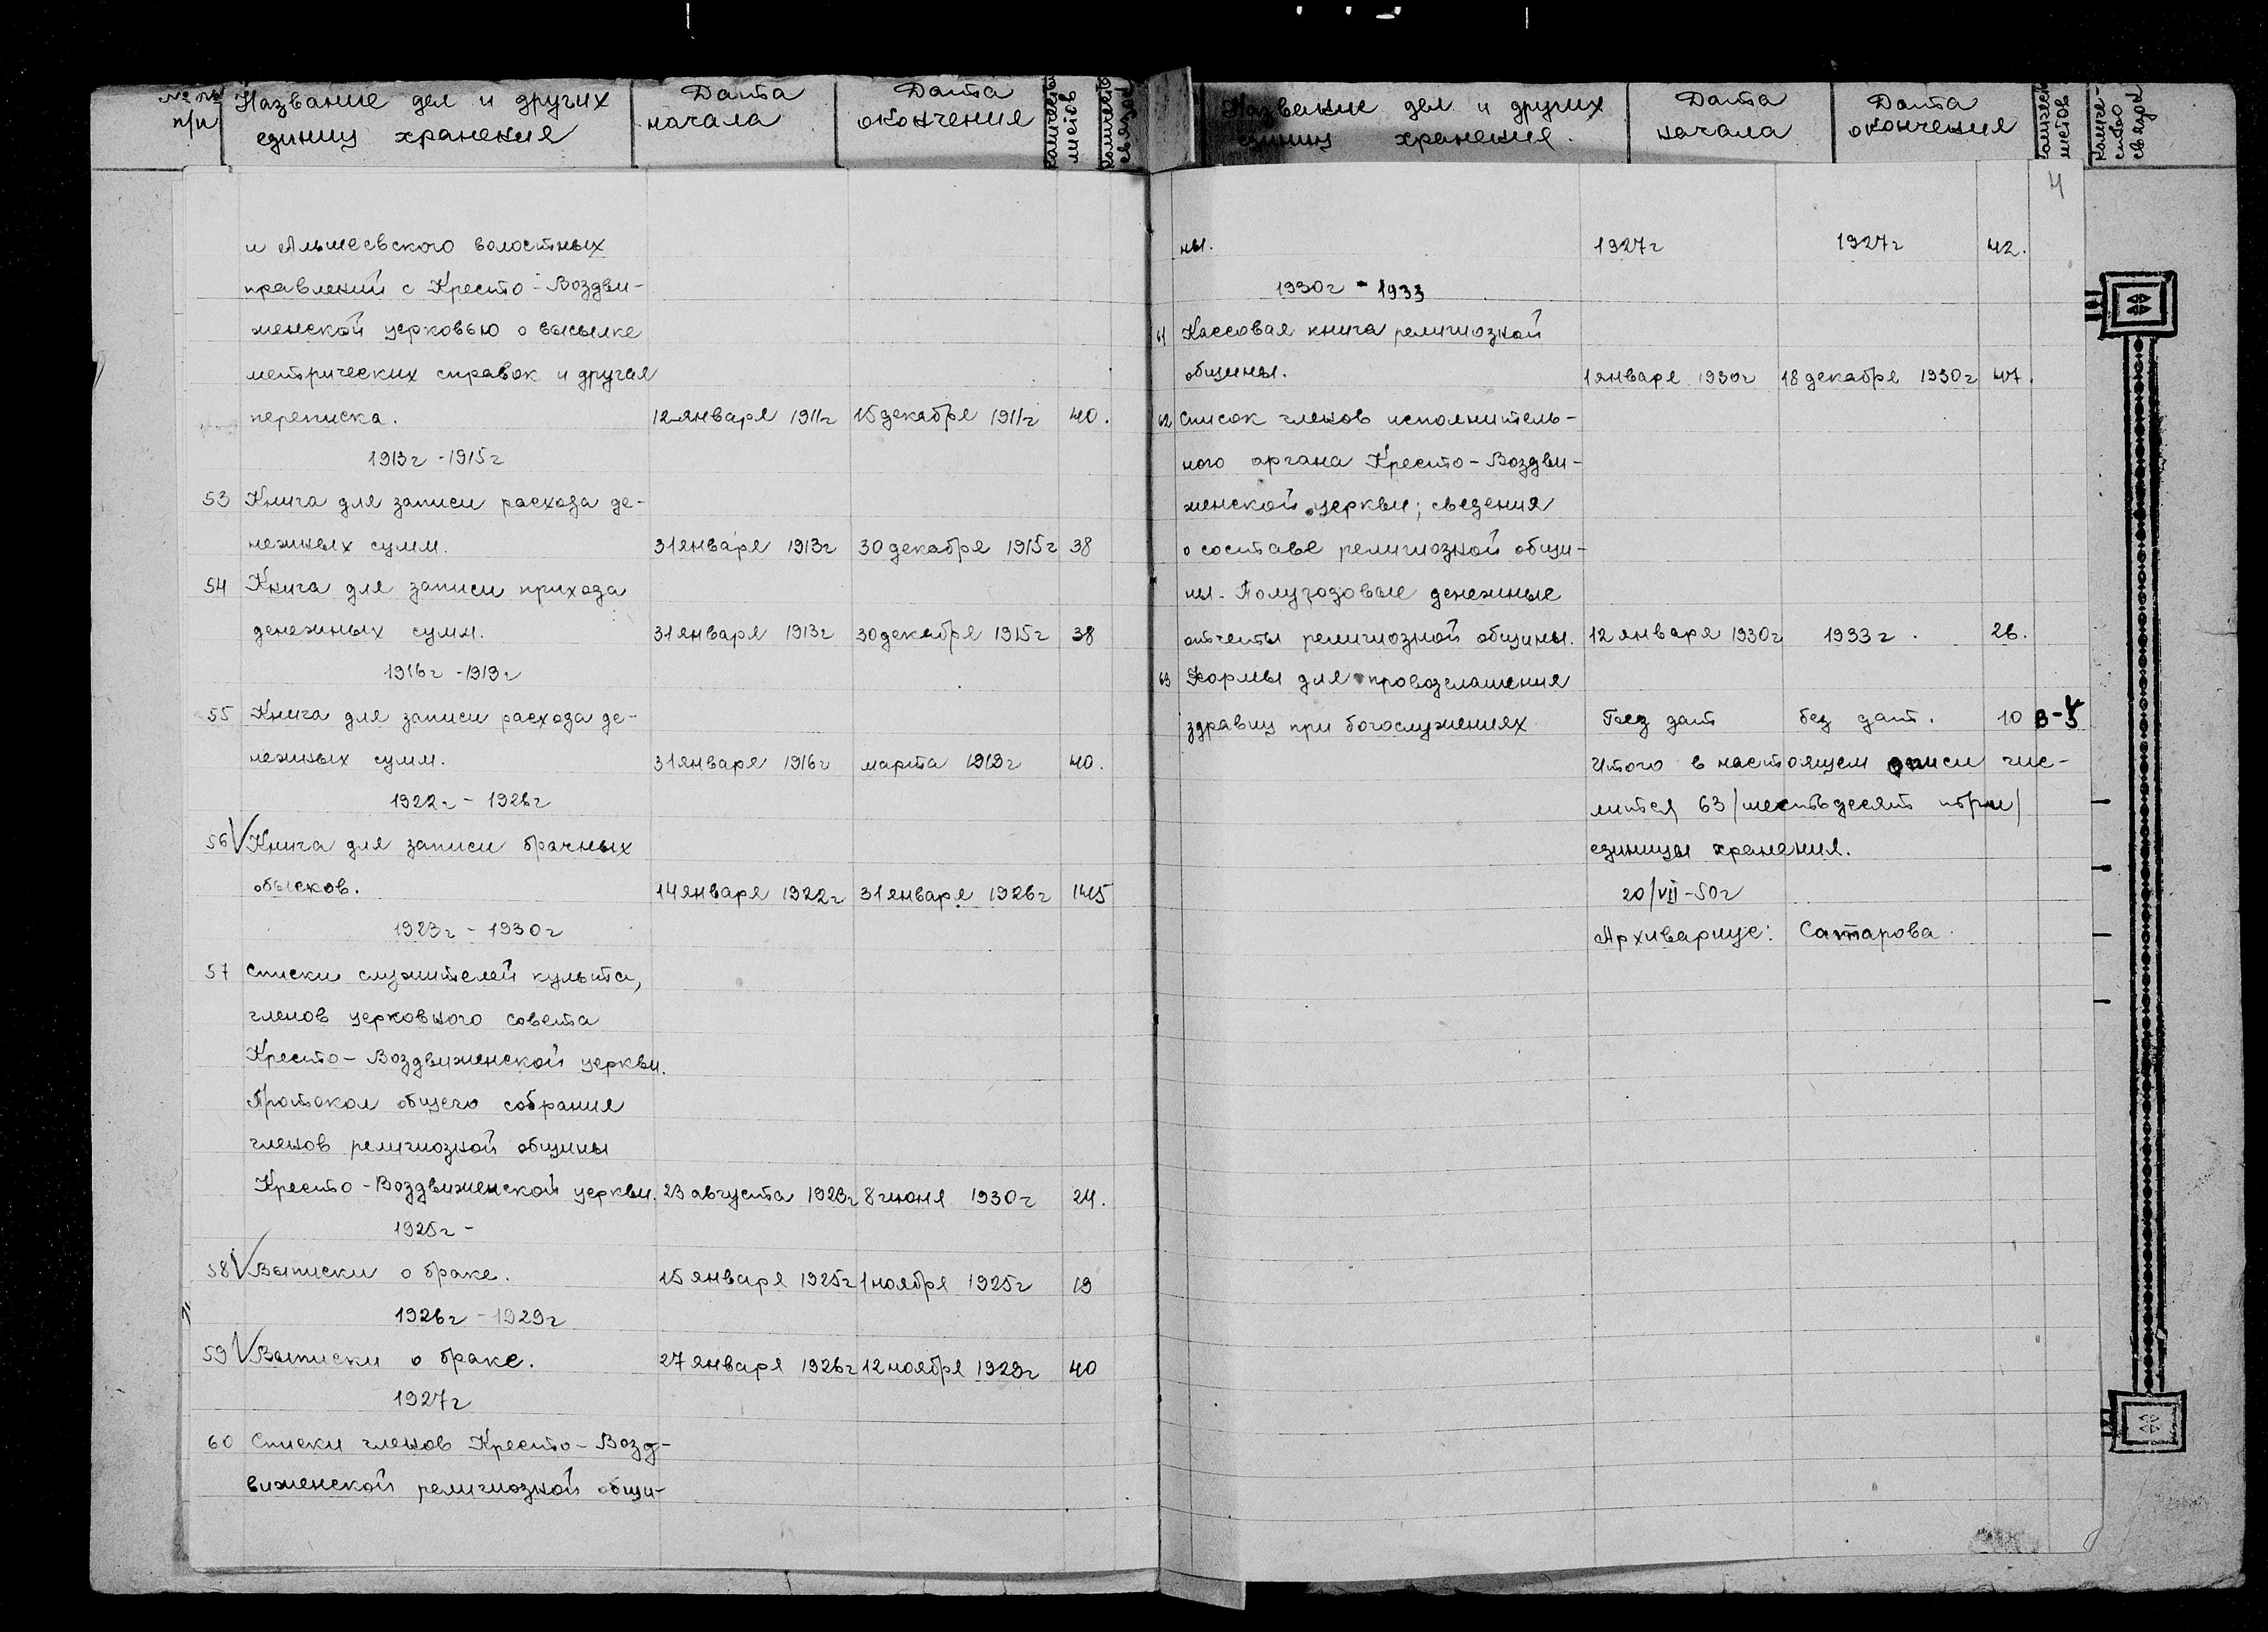 № № Название дел и других Дата Дата количество количество
п/п единиц хранения начала окончения листов связок
и Альшеевского волостных
правлений с Кресто-Воздви-
женской церковью о высылке
метрических справок и другая
переписка. 12 января 1911г 15 декабря 1911г 40.
1913г - 1915г
53 Книга для записи расхода де-
нежных сумм. 31 января 1913г 30 декабря 1915г 38
54 Книга для записи прихода
денежных сумм. 31 января 1913г 30 декабря 1915г 38
1916г - 1919г
55 Книга для записи расхода де-
нежных сумм. 31 января 1916г марта 1919г 40.
1922г - 1926г
56 √ Книга для записи брачных
обысков. 14 января 1922г 31 января 1926г 145
1923г - 1930г
57 Списки служителей культа,
членов церковного совета
Кресто-Воздвиженской церкви.
Протокол общего собрания
членов религиозной общины
Кресто-Воздвиженской церкви. 23 августа 1923г 8 июня 1930г 24.
1925г -
58 √ Выписки о браке. 15 января 1925г 1 ноября 1925г 19
1926г - 1929г
59 √ Выписки о браке. 27 января 1926г 12 ноября 1929г 40
1927г
60 Списки членов Кресто-Возд-
виженской религиозной общи-
Название дел и других Дата Дата количест листов количе-
единиц хранения. начала окончения ство связок
4
ны. 1927г 1927г 42.
1930г - 1933
61 Кассовая книга религиозной
общины. 1 января 1930г 18 декабря 1930г 47.
62 Список членов исполнитель-
ного органа Кресто-Воздви-
женской церкви; сведения
о составе религиозной общи-
ны. Полугодовые денежные
отчеты религиозной общины. 12 января 1930г 1933г. 26.
63 Формы для провозглашения
здравиц при богослужениях Без дат без дат. 10
Итого в настоящем описи чис-
лится 63 /шестьдесят три/
единицы хранения.
20/VII-50г
Архивариус: Сатарова